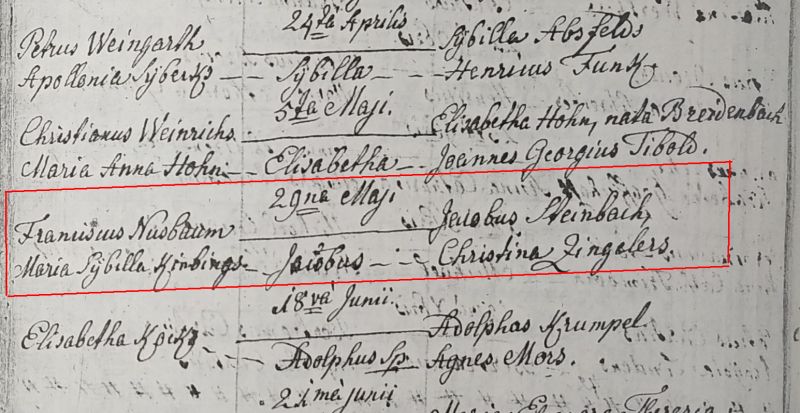 24ta Aprilis
Petrus Weingarth Sÿbilla Absfelds
Apollonia Sÿbertz Sÿbilla Henricus Funk
5ta Maji.
Christianus Weinrichs Elisabetha Hohn, nata Breidenbach
Maria Anna Hohn Elisabetha Joannes Georgius Tibold.
29na Maji
Franciscus Nusbaum Jacobus Steinbach
Maria Sÿbilla Jacobus Christina Zingelers.
18va Junii
Elisabetha Adolphus Krumpel
Adolphus Sp. Agnes Mors.
21ma junii
Maria